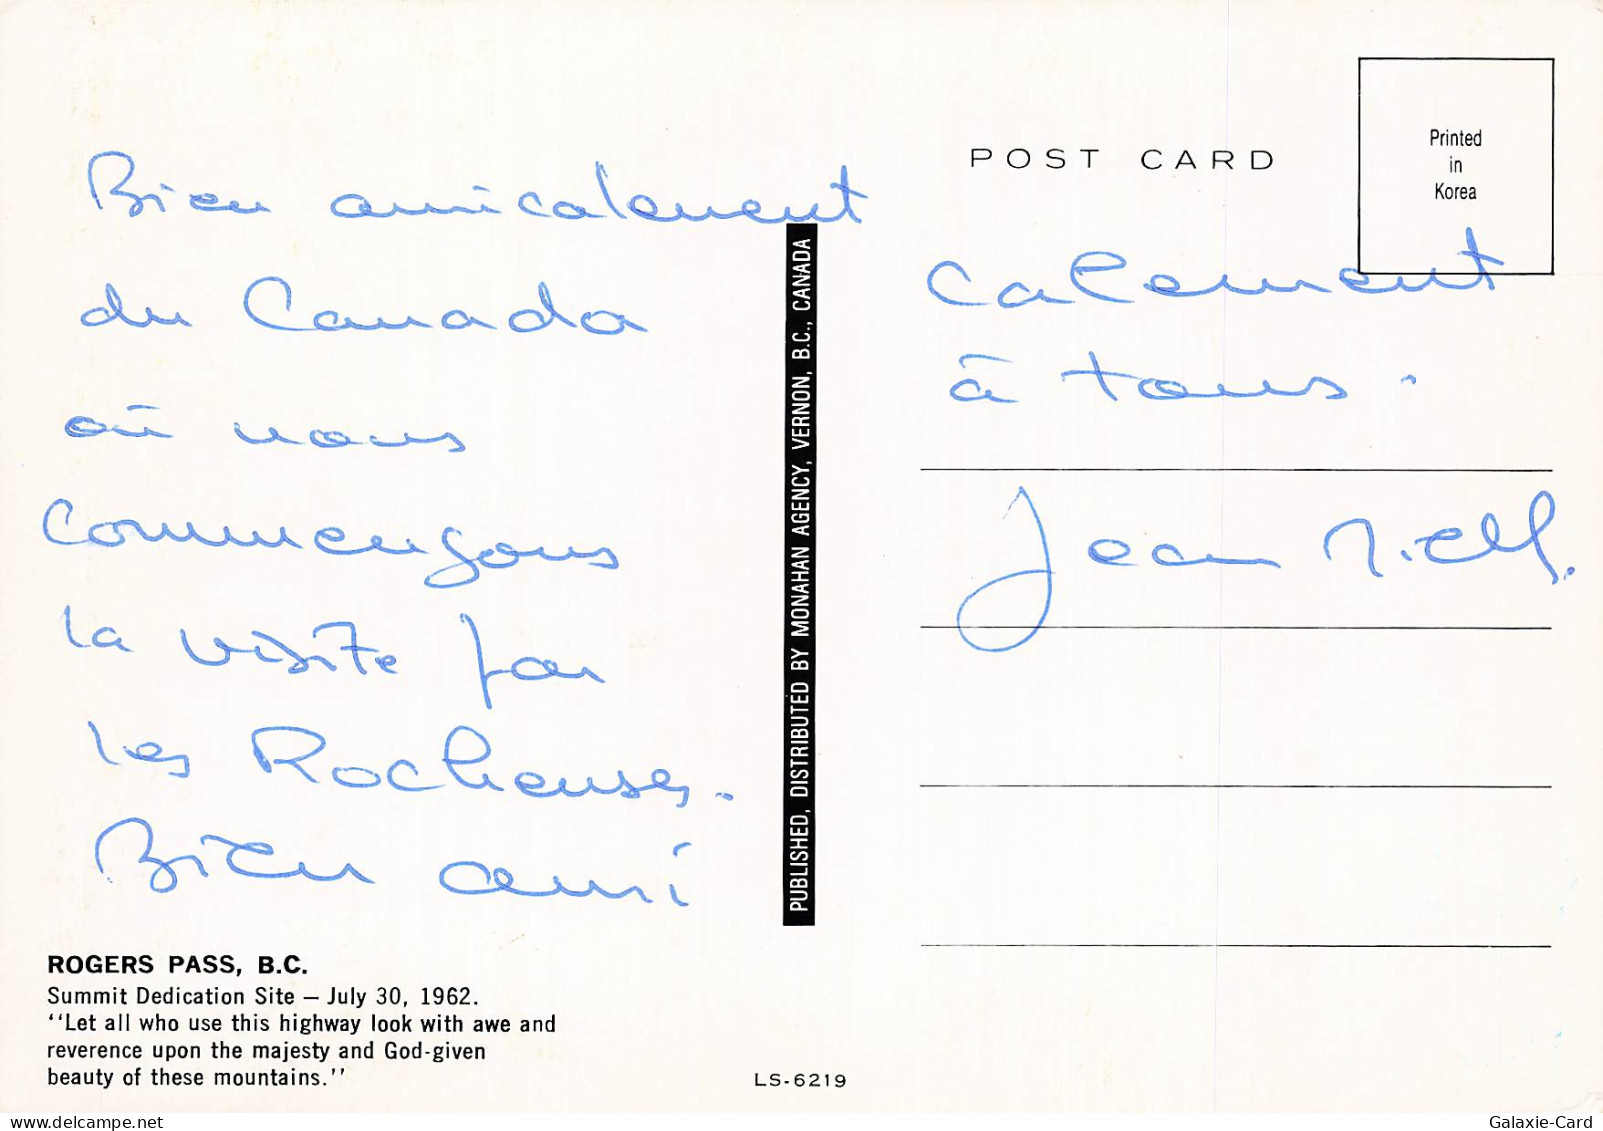 Bien amicalement
du Canada
où nous
commençons
la visite par
les Rocheuses.
Bien ami
ROGERS PASS, B.C.
Summit Dedication Site — July 30, 1962.
‘‘Let all who use this highway look with awe and
reverence upon the majesty and God-given
beauty of these mountains.’’
PUBLISHED, DISTRIBUTED BY MONAHAN AGENCY, VERNON, B.C., CANADA
LS-6219
POST CARD
Printed
in
Korea
calement
à tous.
Jean
Galaxie-Card